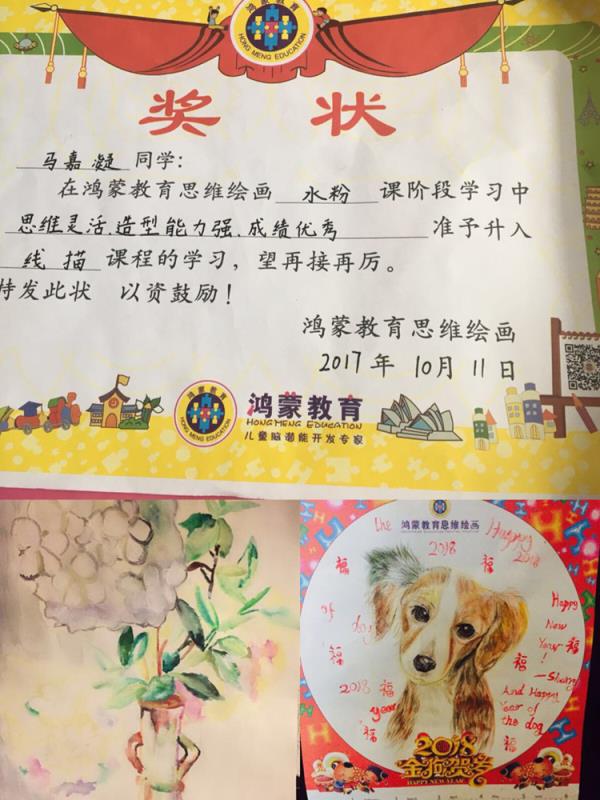 鸿蒙教育
HONG MENG EDUCATION
奖 状
马嘉凝 同学:
在鸿蒙教育思维绘画 水粉 课阶段学习中
思维灵活.造型能力强.成绩优秀 准予升入
线 描 课程的学习，望再接再厉。
特发此状 以资鼓励！
鸿蒙教育思维绘画
2017 年 10月 11 日
鸿蒙教育
HONG MENG EDUCATION
鸿蒙教育
HONGMENG EDUCATION
儿童脑潜能开发专家
鸿蒙教育思维绘画
the
2018
Happy
2018
福
福
of
福
dog
Happy
New
Year
!
福
福
福
2018
福
year
福
And Happy
Year of
the dog
福
2018
金狗贺岁
HAPPY NEW YEAR